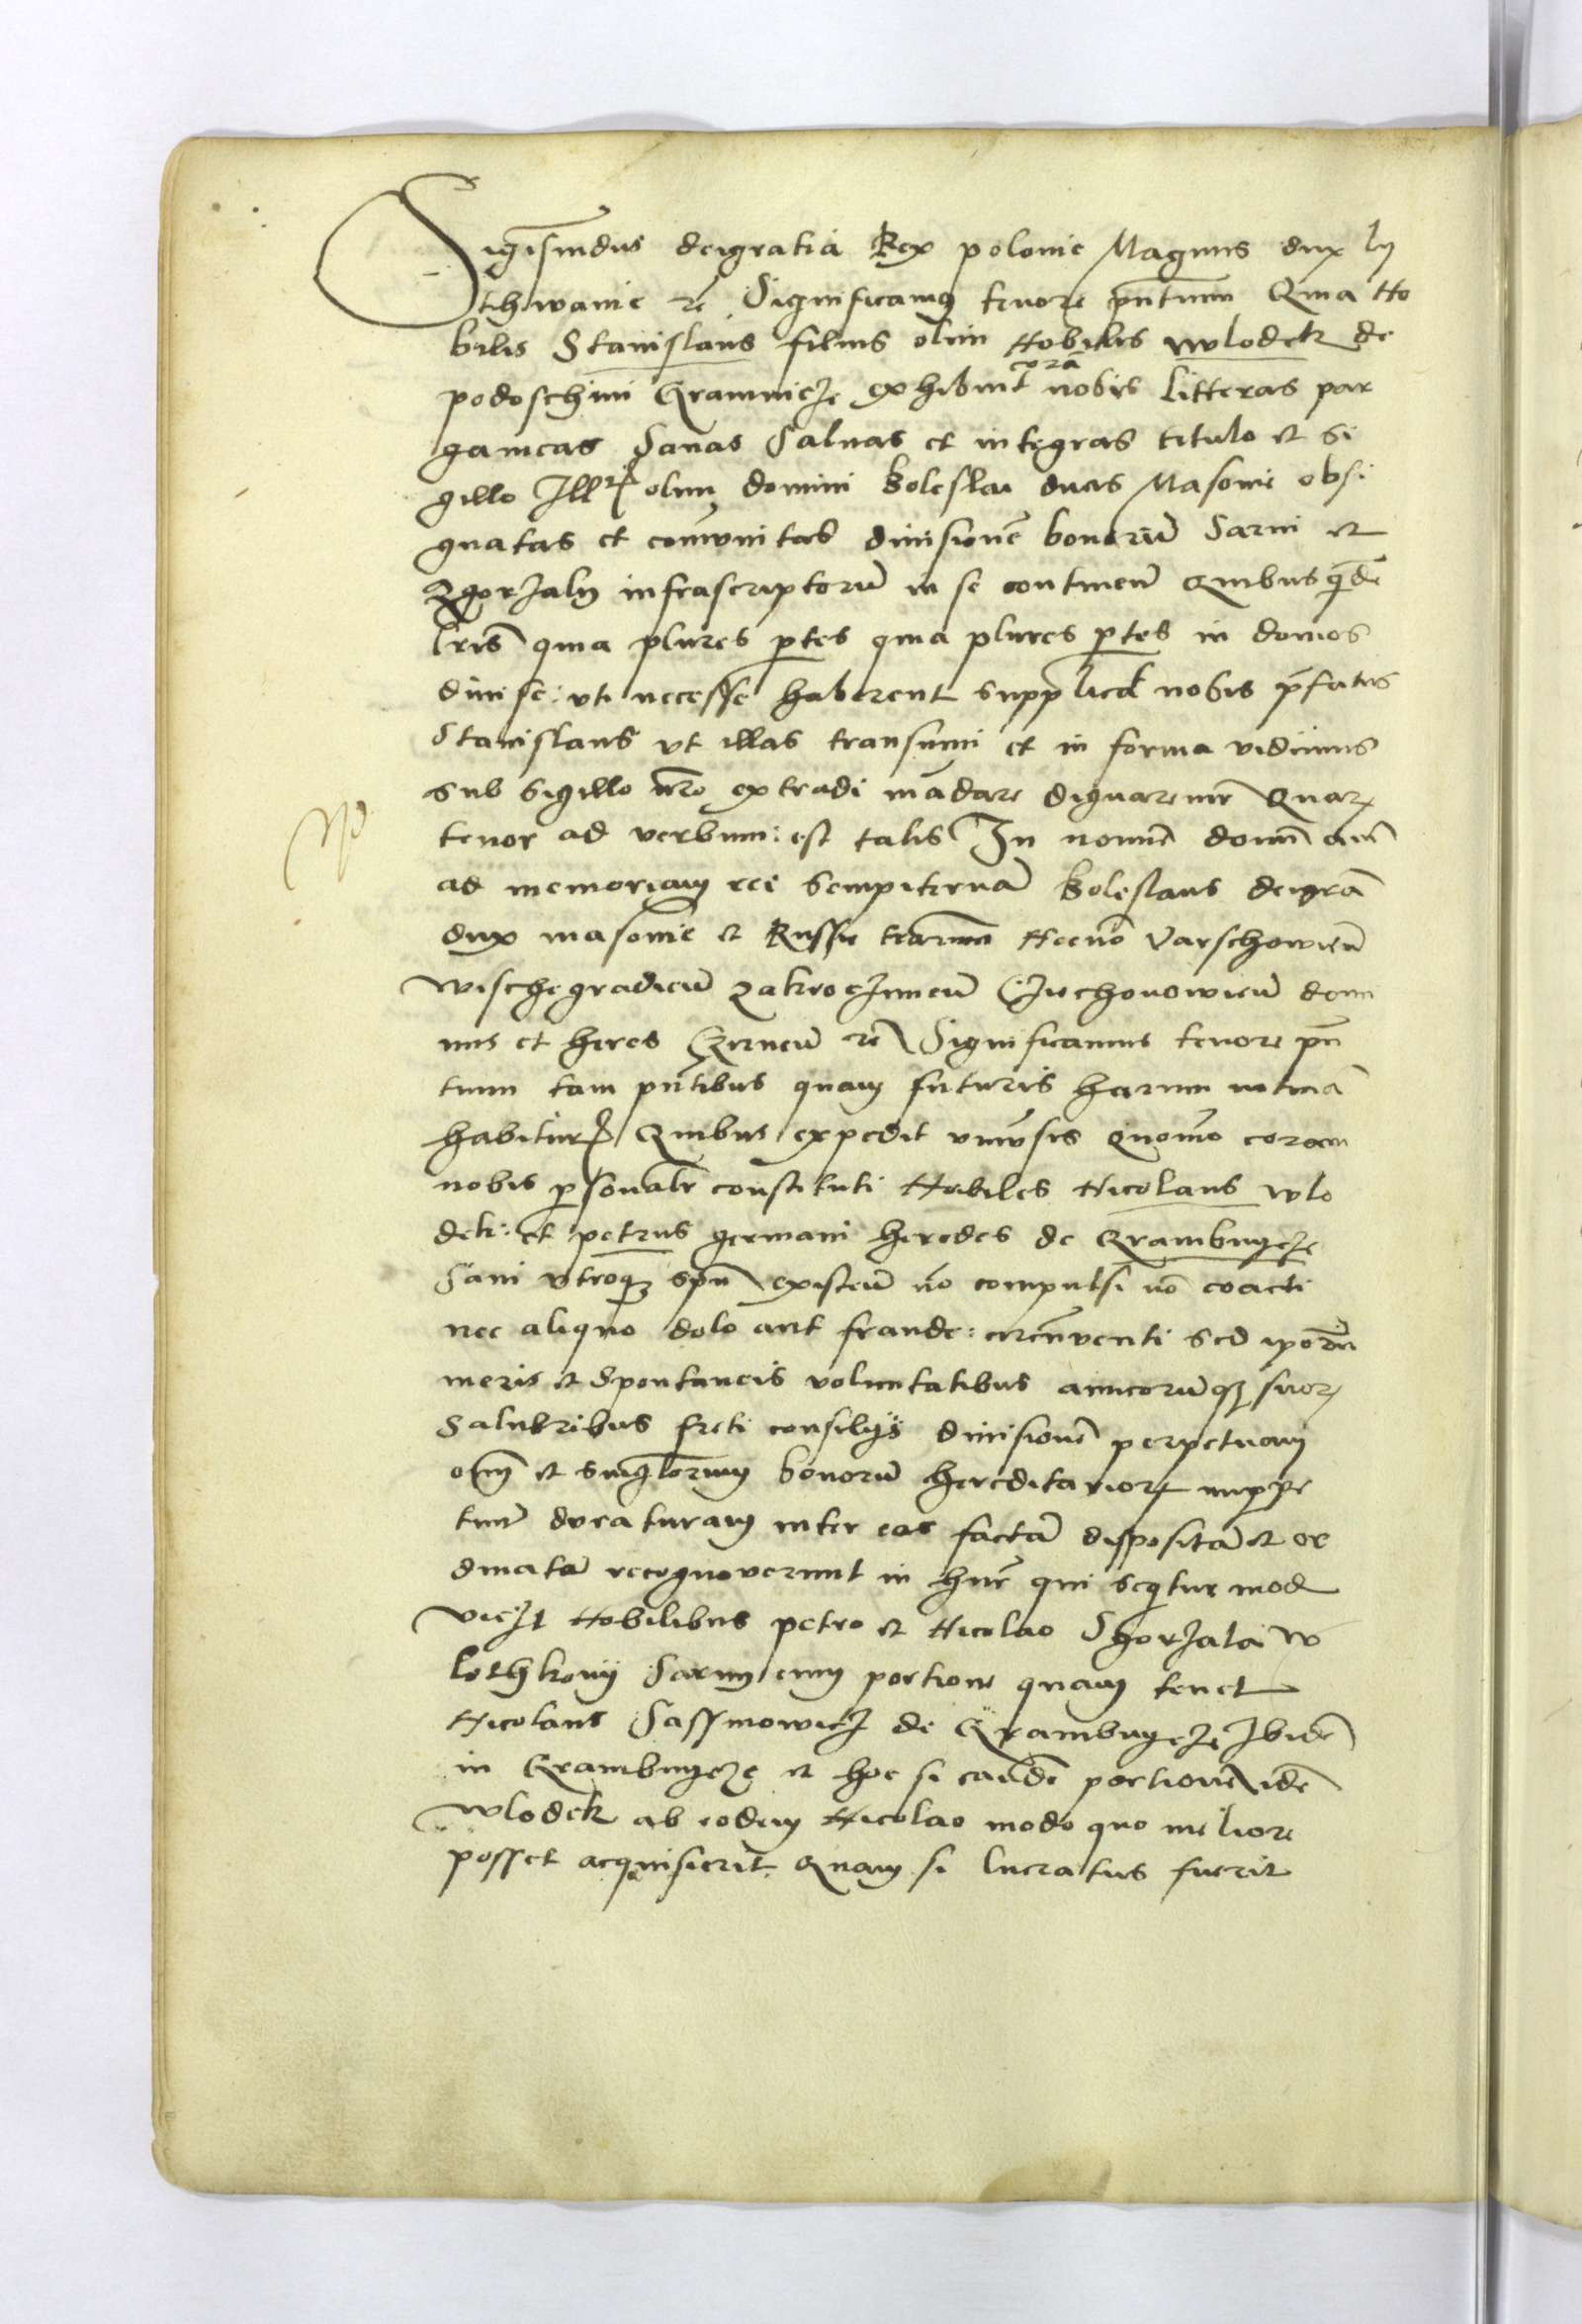 Sigismũdus deigratia Rex polonie Magnus dux ly
thwanie rẽ Significamus tenore pñtium Quia No
bilis Stanislaus filius olim Nobilis wlodek de
podoschini exhibuit corã nobis litteras par
gameas Sanas Saluas et integras titulo et si
gillo olim domini Boleslai ducis Masouie obsi
gnatas et diuisionẽ bonorũ Sarni et
Zgorzaly infrascriptorũ in se contineñ Quibus quidẽ
lr̃is quia plures p̱tes quia plures p̱tes in domos
diuise: uti necesse haberent nobis p̃fatus
Stanislaus vt illas transumi et in forma vidimus
sub sigillo nr̃o extradi mãdare dignaremur Quarꝝ
tenor ad verbum: est talis In nomine domini amẽ
ad memoriam rei sempiternã Boleslaus deigrã
dux masouie et Russie terrarum Necnõ Varschowieñ
wischegradieñ zakroczimeñ Cziechonowieñ domi
nus et heres Czirneñ rẽ Significamus tenore pñ
tium tam pñtibus quam futuris harum noticiã
habiturꝭ Quibus expedit vniũsis Quomõ coram
nobis p̱sonalr̃ constituti Nobiles Nicolaus wlo
dek: et petrus germani heredes de Grambnycze
Sani vtroqꝫ existeñ nõ compulsi nõ coacti
nec aliquo dolo aut fraude: circũuenti sed ip̃orũ
meris et Spontaneis voluntatibus amicorũqꝫ suorꝝ
Salubribus freti consilijs diuisionẽ perpetuam
om̃ et singlorum bonorũ hereditariorꝝ inppe
tuũ duraturam inter eos factã dispositã et or
dinatã recognouerunt in hũc qui seqtur mod
viczt Nobilibus petro et Nicolao Sgorzala w
lothkovij Sarnij cum portione quam tenet
Nicolaus Sassinowicz de Grambnycze Ibidẽ
in Grambnycze et hoc si eandẽ portionẽ idẽ
wlodek ab eodem Nicolao modo quo meliore
posset acquisierit Quam si lucratus fuerit